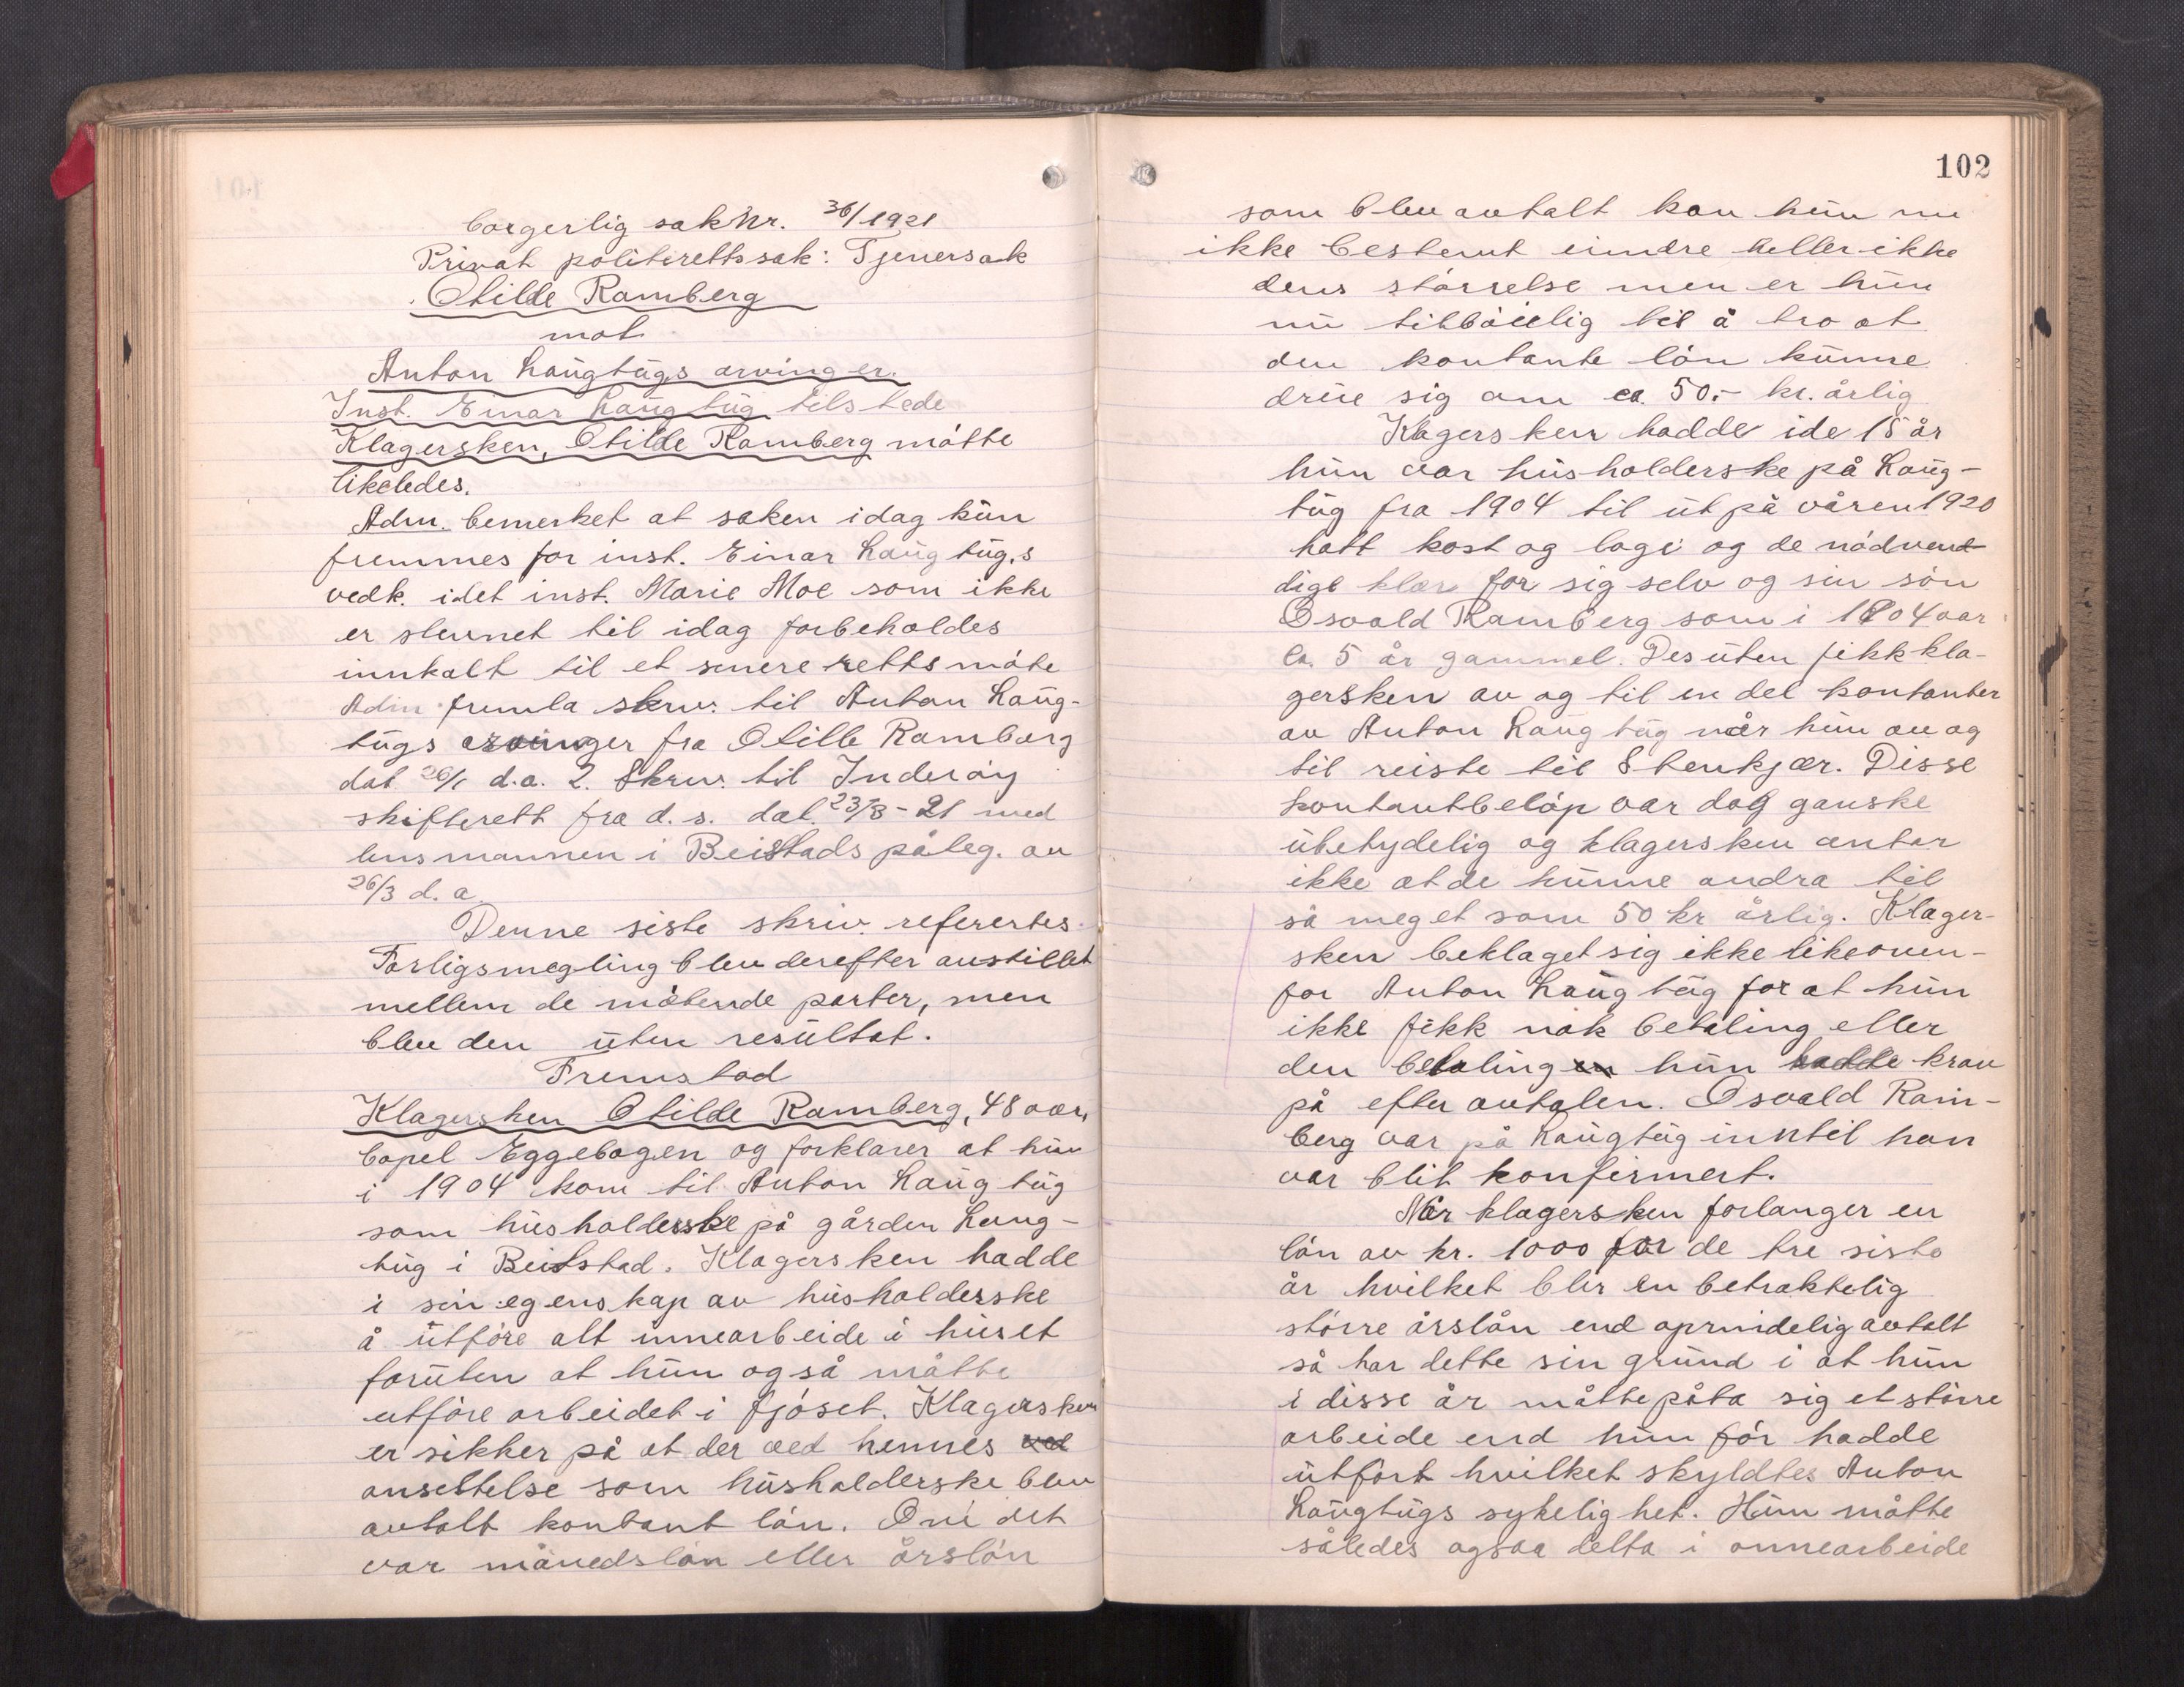 borgerlig sak Nr. 36/1921
Privat politirettssak: Tjenersak
Otilde Ramberg
mot
Anton Langtugs arvinger.
Inst. Einar Langtug tilstede
Klagersken, Otilde Ramberg møtte
likeledes.
Adm. bemerket at saken idag kun
fremmes for inst. Einar Langtug,s
vedk. idet inst. Marie Moe som ikke
er stevnet til idag forbeholdes
innkalt til et senere rettsmøte
Adm fremla skriv. til Anton Lang-
tugs arvinger fra Otille Ramberg
dat 26/1 d.a. 2. Skriv. til Inderøy
skifterett fra d. s. dat. 23/3-21 med
lensmannen i Beitstads påteg. av
26/3 d. a
Denne siste skriv. referertes.
Forligsmegling blev derefter anstillet
mellem de møtende parter, men
blev den uten resultat.
Fremstod
Klagersken Otilde Ramberg, 48 aar,
bopel Eggebogen og forklarer at hun
i 1904 kom til Anton Langtug
som husholderske på gården Lang-
tug i Beitstad. Klagersken hadde
i sin egenskap av husholderske
å utføre alt innearbeide i huset
foruten at hun også måtte
utføre arbeidet i fjøset. Klagersken
er sikker på at der ved hennes ved
ansettelse som husholderske blev
avtalt kontant løn. Om det
var månedsløn eller årsløn
102
som blev avtalt kan hun nu
ikke bestemt eindre heller ikke
dens størrelse men er hun
nu tilbøielig til å tro at
den kontante løn kunne
dreie sig om ca. 50.- kr. årlig
Klagersken hadde i de 15 år
hun var husholderske på Lang-
tug fra 1904 til ut på våren 1920
hatt kost og logi og de nødvend
dige klær for sig selv og sin søn
Osvald Ramberg som i 1904 var
ca. 5 år gammel. Desuten fikk kla-
gersken av og til en del kontanter
av Anton Langtug når hun av og
til reiste til Stenkjær. Disse
kontantbeløp var dog ganske
ubetydelig og klagersken antar
ikke at de kunne andra til
så meget som 50 kr årlig. Klager-
sken beklaget sig ikke likeoven-
for Anton Langtug for at hun
ikke fikk nok betaling eller
den betalingen hun hadde krav
på efter avtalen. Osvald Ram-
berg var på Langtug inntil han
var blit konfirmert.
Når klagersken forlanger en
løn av kr. 1000 for de tre siste
år hvilket blir en betraktelig
større årsløn end oprindelig avtalt
så har dette sin grund i at hun
i disse år måtte påta sig et større
arbeide end hun før hadde
utført hvilket skyldtes Anton
Langtugs sykelighet. Hun måtte
således ogsaa delta i onnearbeide